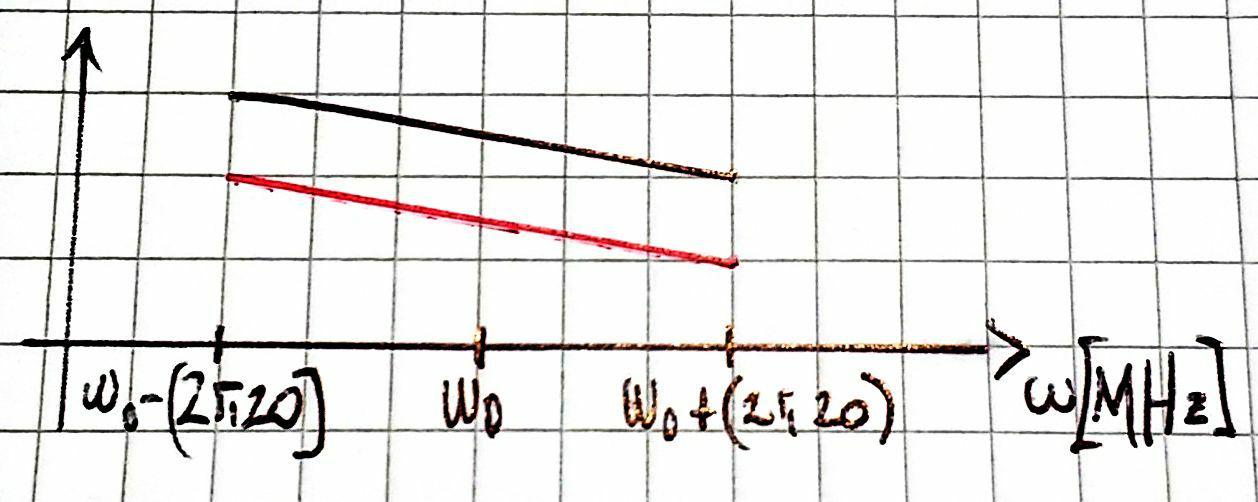 ω₀-(2π20]
ω₀
ω₀+(2π20)
ω[MHz]